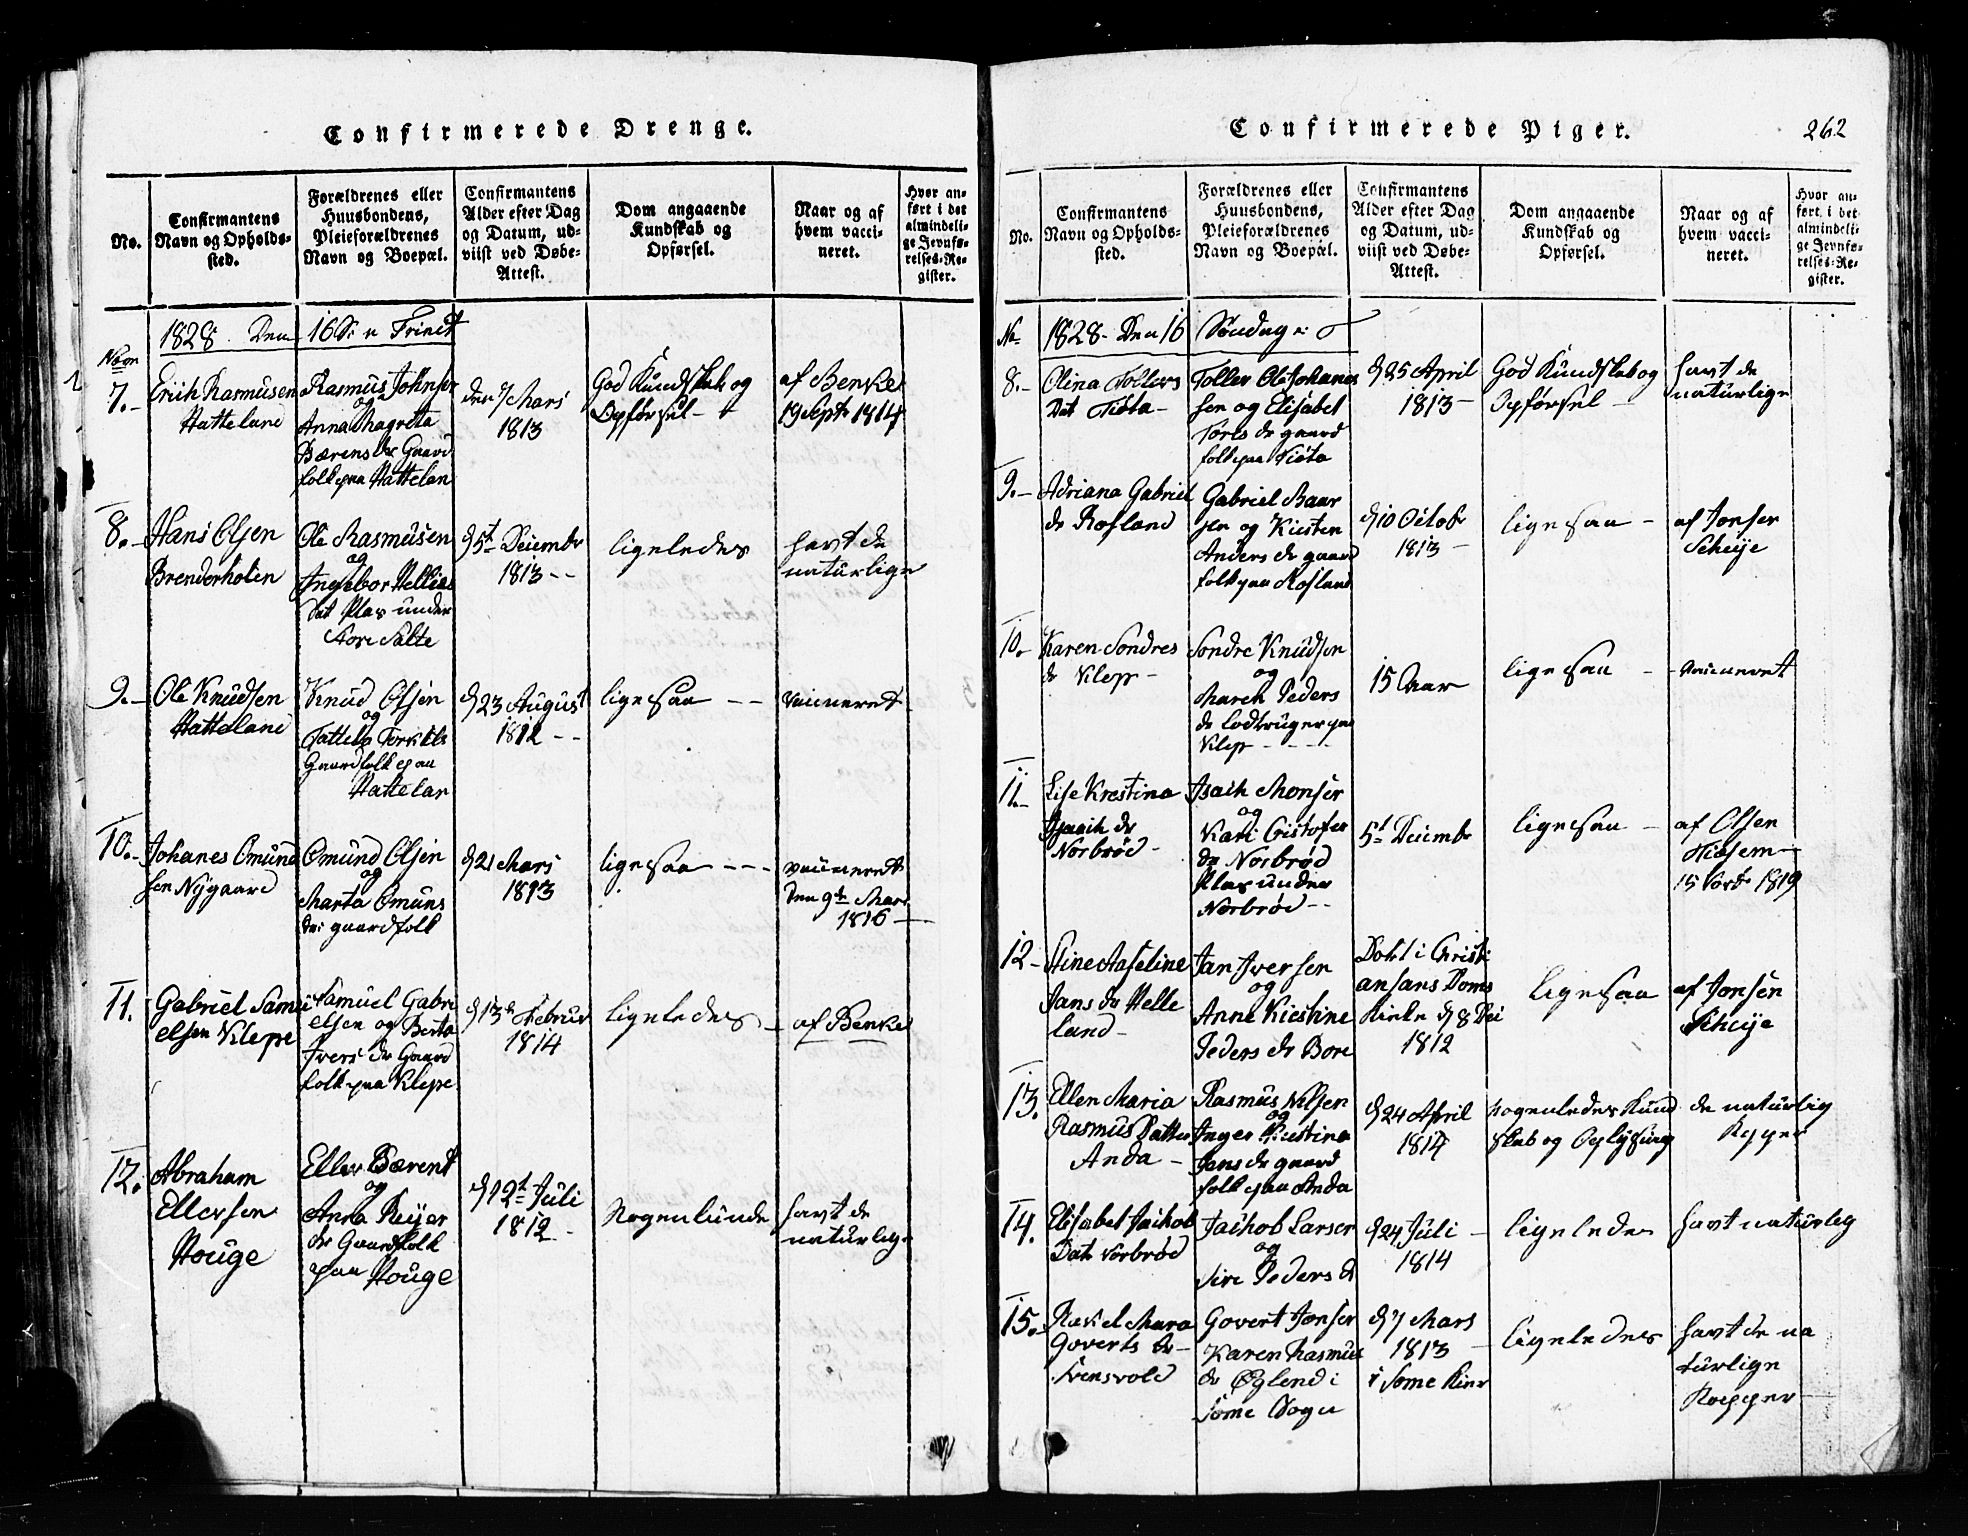 Confirmerede Drenge.
No.
Confirmantens
Navn og Opholds-
sted.
Forældrenes eller
Huusbondens,
Pleieforældrenes
Navn og Boepæl.
Confirmantens
Alder efter Dag
og Datum, ud-
viist ved Døbe-
Attest.
Dom angaaende
Kundskab og
Opførsel.
Naar og af
hvem vacci-
neret.
Hvor an-
ført i det
almindeli-
ge Jevnfø-
relses-Re-
gister.
1828. Den 16 S: n Trinit
7.
Erich Rasmusen
Hatteland
Rasmus Johnsen
og
Anna Magreta
Bærens dr Gaard
folk paa Hattelan
den 7 Mars
1813
God Kundskab og
Opførsel
af Benke
19 Sept 1814
8.
Hans Olsen
Brenderholen
Ole Rasmusen
og
Ingebor Hellies
Dat Plas under
Store Salte
d 5t Decembr
1813
ligeledes
havt de
naturlige
9.
Ole Knudsen
Hatteland
Knud Olsen
og
Torkils
Gaardfolk paa
Hattelan
d 23 August
1812
ligesaa
vaccineret
10.
Johanes Omund
sen Nygaard
Omund Olsen
og
Marta Omuns
dr gaardfolk
d 21 Mars
1813
ligesaa
vaccineret
den 9de Mars
1816
11.
Gabriel Samu
elsen Klepe
Samuel Gabri
elsen og Berta
Ivers dr Gaard
folk paa Klepe
d 13de Februr
1814
ligeledes
af Benke
12.
Abraham
Ellersen
Houge
Eller Bærent
og
Anna Reijer
dr Gaardfolk
paa Houge
d 12t Juli
1812
Nogenlunde
havt de
naturlige
Confirmerede Piger.
262
No.
Confirmantens
Navn og Opholds-
sted.
Forældrenes eller
Huusbondens,
Pleieforældrenes
Navn og Boepæl.
Confirmantens
Alder efter Dag
og Datum, ud-
viist ved Døbe-
Attest.
Dom angaaende
Kundskab og
Opførsel.
Naar og af
hvem vacci-
neret.
Hvor an-
ført i det
almindeli-
ge Jevnfø-
relses-Re-
gister.
No 1828. Den 16 Søndag n:
8.
Olina Tollevs
Dat Tiøta
Tollev Ole Johanes
sen og Elisabet
Tores dr gaard
folk paa Tiøta
d 25 April
1813
God Kundskab og
Opførsel
havt de
naturlige
9.
Adriana Gabriel
dr Rosland
Gabriel Baar
sen og Kiersten
Anders dr gaard
folk paa Rosland
d 10 Octob
1813
ligesaa
af Jonsen
Scheije
10.
Karen Sondres
dr Klep
Sondre Knudsen
og
Maren Peders
dr lodbruger paa
Klep
15 Aar
ligesaa
vaccineret
11.
Lise Krestina
Isach dr
Norbrød
Isach Monsen
og
Kari Cistofer
dr Norbrød
Plas under
Norbrød
5t Decembr
ligesaa
af Olsen
15 1819
12
Stine Aaseline
Jans dr Helle
land
Jan Iversen
og
Anne Kiestine
Peders dr Bore
Døbt i Christi
ansans Doms
Kirke d 8 Dec
1812
ligesaa
af Jonsen
Scheije
13.
Ellen Maria
Rasmus Datter
Anda
Rasmus Nilsen
og
Inger Kiestina
Jans dr gaard
folk paa Anda
d 24 April
1814
nogenledes Kund
skab og Oplysning
de naturlig
Kopper
14.
Elisabet Jachob
Datr Norbrød
Jachob Larsen
og
Siri Peders dr
d 24 Juli
1814
ligeledes
havt naturleg
15.
Rakel Mara
Goverts dr
Svensvold
Govert Jonsen
Karen Rasmus
dr Øglend i
Some Sogn
d 7 Mars
1813
i Some Kirk
ligeledes
havt de na
turlige
Kopper